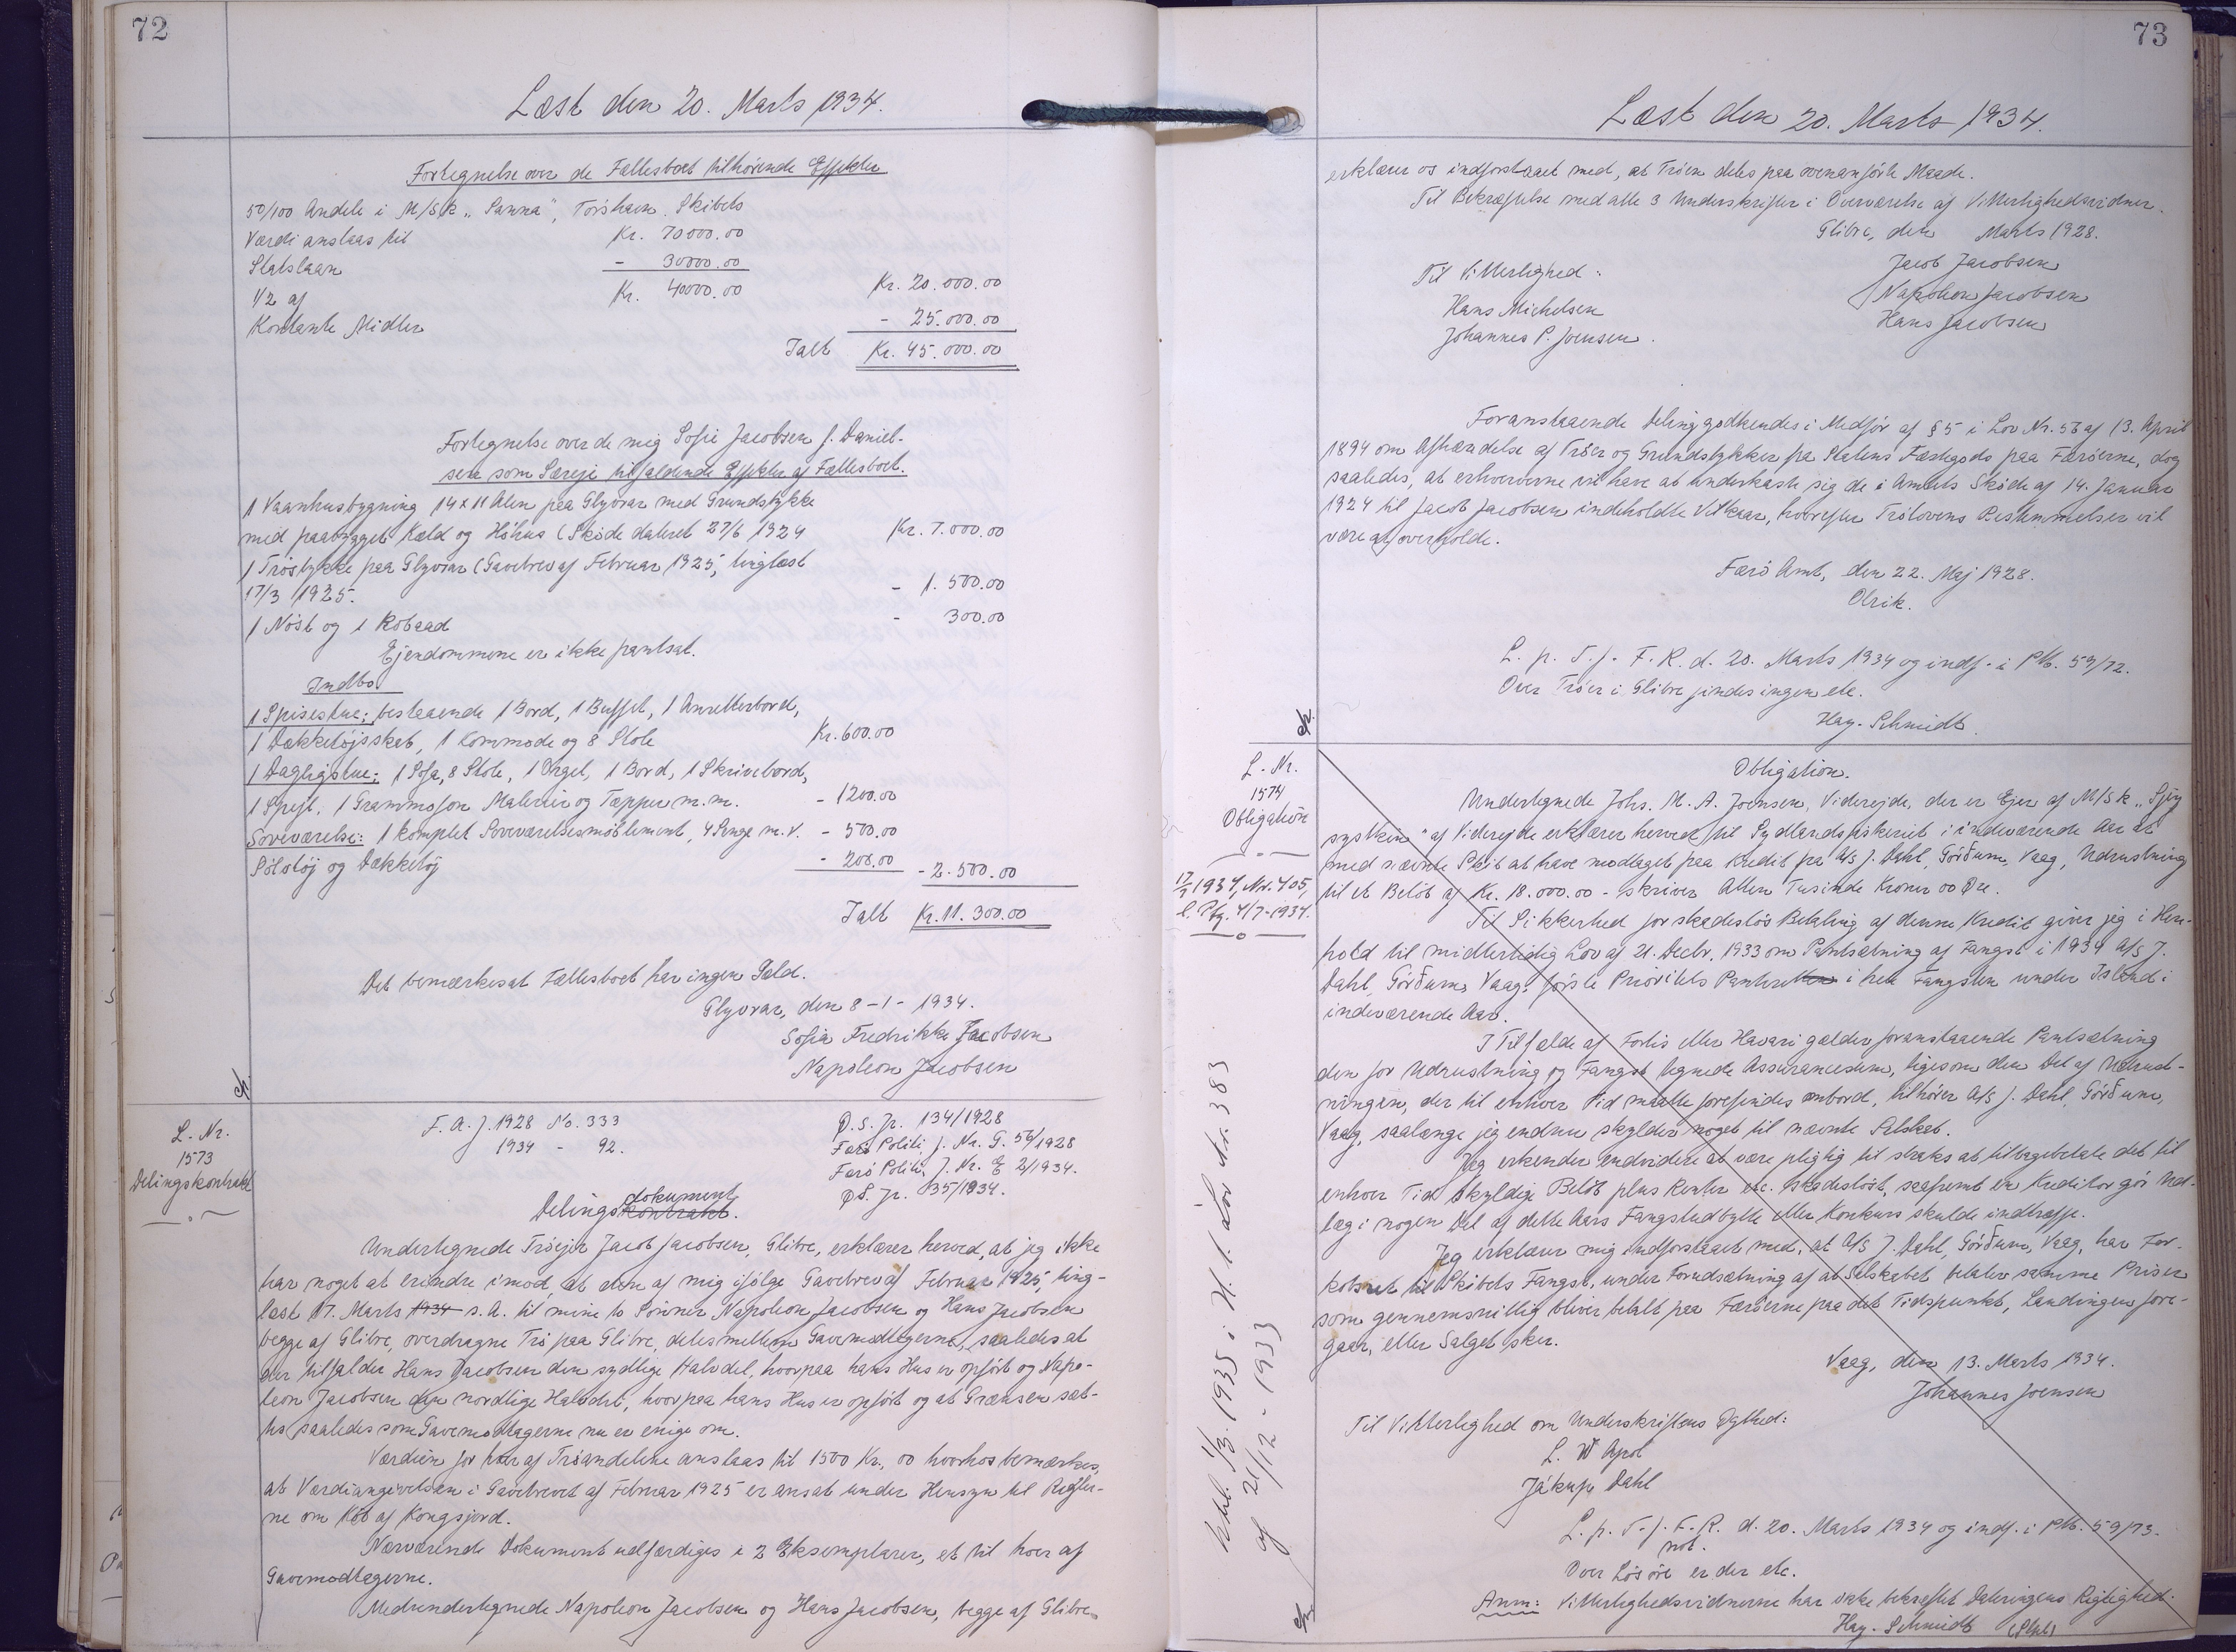 72
Læst den 20. Marts 1934.
Fortegnelse over de Fællesboet tilhørende Effekter
50/100 Andele i M/Sk „Sanna", Torshavn. Skibets
Værdi anslaas til Kr. 70000.00
Statslaan - 30000.00
1/2 af Kr. 40000.00 Kr. 20.000.00
Kontante Midler - 25.000.00
Ialt Kr. 45.000.00
Fortegnelse over de mig Sofie Jacobsen f. Daniel-
sen som Særeje tilfaldende Effekter af Fællesboet.
1 Vaanhusbygning 14x11 Alen paa Glyvrar med Grundstykke
med paabygget Kæld og Höhus (Sköde dateret 27/6 1924 Kr. 7.000.00
1 Tröstykke paa Glyvrar (Gavebrev af Februar 1925, tinglæst
17/3 1925. - 1.500.00
1 Nöst og 1 Robaad - 300.00
Ejendommene er ikke pantsat.
Indbo
1 Spisestue; bestaaende 1 Bord, 1 Buffet, 1 Anretterbord,
1 Dækketöjsskab, 1 Kommode og 8 Stole Kr. 600.00
1 Dagligstue: 1 Sofa, 8 Stole, 1 Orgel, 1 Bord, 1 Skrivebord,
1 Spejl, 1 Grammofon Malerier og Tæpper m.m. - 1200.00
Soveværelse: 1 komplet Soveværelsesmöblement, 4 Senge m.v. - 500.00
Sölvtöj og Dækketöj - 200.00 - 2.500.00
Ialt Kr. 11.300.00
Det bemærkes at Fællesboet har ingen Gæld.
Glyvrar, den 8-1-1934.
Sofia Fredrikke Jacobsen
Napoleon Jacobsen
L. Nr.
1573
Delingskontrakt
F. A. J. 1928 No. 333
1934 - 92.
Ø. S. Jr. 134/1928
Færö Politi, J. Nr. G. 56/1928
Færö Politi, J. Nr. E 2/1934.
ØS. Jr. 35/1934.
dokument
Delingskontrakt.
Undertegnede Tröejer Jacob Jacobsen, Glibre, erklærer herved, at jeg ikke
har noget at erindre imod, at den af mig ifölge Gavebrev af Februar 1925, ting-
læst 17. Marts 1934 s. A. til mine to Sönner Napoleon Jacobsen og Hans Jacobsen
begge af Glibre, overdragne Trö paa Glibre, deles mellem Gavemodtagerne, saaledes at
der tilfalder Hans Jacobsen den sydlige Halvdel, hvorpaa hans Hus er opfört og Napo-
leon Jacobsen den nordlige Halvdel, hvorpaa hans Hus er opfört og at Grænsen sæt-
tes saaledes som Gavemodtagerne nu er enige om.
Værdien for hver af Tröandelene anslaas til 1500 Kr., 00 hvorhos bemærkes,
at Værdiangivelsen i Gavebrevet af Februar 1925 er ansat under Hensyn til Regler-
ne om Köb af Kongsjord.
Nærværende Dokument udfærdiges i 2 Eksemplarer, et til hver af
Gavemodtagerne.
Medundertegnede Napoleon Jacobsen og Hans Jacobsen, begge af Glibre,
73
Læst den 20. Marts 1934.
erklærer os indforstaaet med, at Tröen deles paa ovenanförte Maade.
Til Bekræftelse med alle 3 Underskrifter i Overværelse af Vitterlighedsvidner.
Glibre, den Marts 1928.
Til Vitterlighed:
Hans Michelsen
Johannes P. Joensen.
Jacob Jacobsen
Napoleon Jacobsen
Hans Jacobsen
Foranstaaende Deling godkendes i Medför af § 5 i Lov Nr. 56 af 13. April
1894 om Afhændelse af Tröer og Grundstykker paa Statens Fæstegods paa Færöerne, dog
saaledes, at erhververne vil have at underkaste sig de i Amtets Sköde af 14. Januar
1924 til Jacob Jacobsen indeholdte Vilkaar, hvorefter Trölovens Bestemmelser vil
være at overholde.
Færö Amt, den 22. Maj 1928.
Olrik.
L. p. T. f. F. R. d. 20. Marts 1934 og indf. i Ptb. 59/72.
Over Tröer i Glibre findes ingen etc.
Hay-Schmidt.
L. Nr.
1574
Obligation
17/7 1934, Nr. 405,
l. Ptg. 4/7-1934.
Obligation.
Undertegnede Johs. M. A. Joensen, Viderejde, der er Ejer af M/Sk „Sjey
systkin" af Viderejde erklærer herved til Sydlandsfiskeriet i indeværende Aar at
med nævnte Skib at have modtaget paa Kredit fra A/S J. Dahl, Görðum, Vaag, Udrustning
til et Belöb af Kr. 18.000.00 - skriver Atten Tusinde Kroner 00 Øre.
Til Sikkerhed for skadeslös Betaling af denne Kredit giver jeg i Hen-
hold til midlertidig Lov af 21. Decbr. 1933 om Pantsætning af Fangst i 1934 A/S J.
Dahl, Görðum, Vaag, förste Prioritets Panteret i hele Fangsten under Island i
indeværende Aar.
I Tilfælde af Forlis eller Havari gælder foranstaaende Pantsætning
den for Udrustning og Fangst tegnede Assurancesum, ligesom den Del af Udrust-
ningen, der til enhver Tid maatte forefindes ombord, tilhörer A/S J. Dahl, Görðum,
Vaag, saalænge jeg endnu skylder noget til nævnte Selskab.
Jeg erkender endvidere at være pligtig til straks at tilbagebetale det til
enhver Tid skyldige Belöb plus Renter etc. skadeslöst, saafremt en Kreditor gör Ud-
læg i nogen Del af dette Aars Fangstudbytte eller Konkurs skulde indtræffe.
Jeg erklærer mig indforstaaet med, at A/S J. Dahl, Görðum, Vaag, har For-
köbsret til Skibets Fangst, under Forudsætning af at Selskabet betaler samme Priser
som gennemsnitlig bliver betalt paa Færöerne paa det Tidspunkt, Landingen fore-
gaar, eller Salget sker.
Vaag, den 13. Marts 1934.
Johannes Joensen
Til Vitterlighed om Underskriftens Ægthed:
L. W Apol
Jákup Dahl
L. p. T. f. F. R. d. 20. Marts 1934 og indf. i Ptb. 59/73.
not.
Over Lösöre er der etc.
Anm: Vitterlighedsvidnerne har ikke bekræftet Dateringens Rigtighed.
Hay-Schmidt
1/3. 1935 i H. t. Lov Nr. 383
af 21/12 - 1933